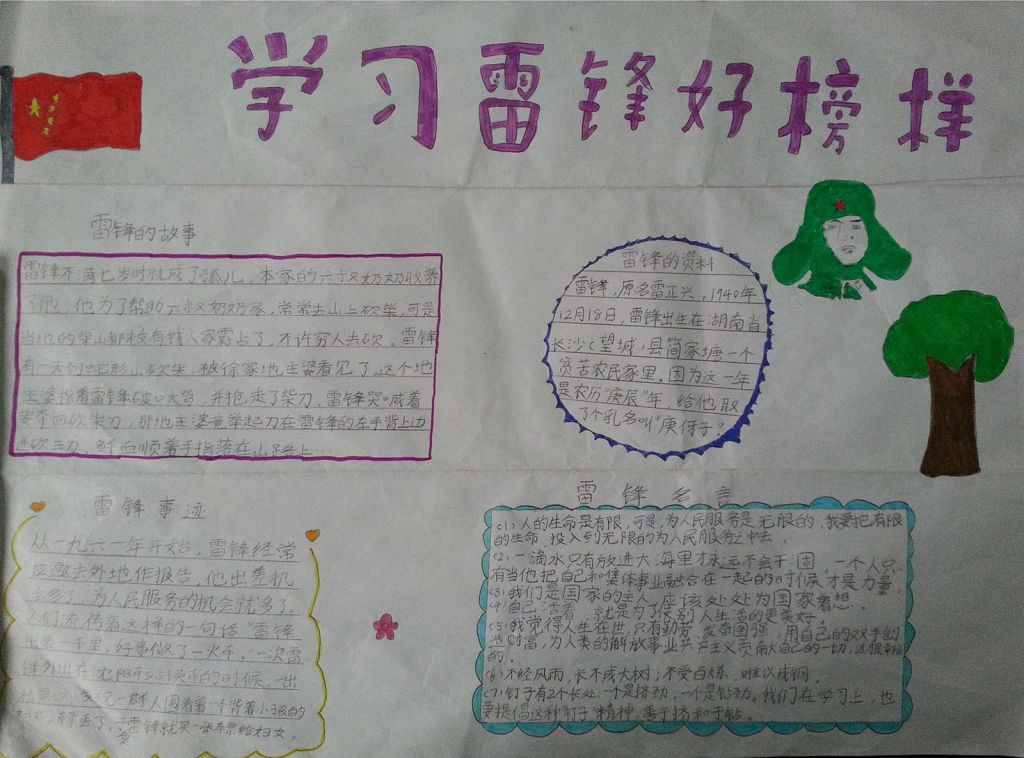 学习雷锋好榜样
雷锋的故事
雷锋不满七岁时就成了孤儿，本家的六叔奶奶收养
了他。他为了帮助六叔奶奶家，常常去山上砍柴，可是
当地的柴山都被有钱人家霸占了，不许穷人去砍。雷锋
有一天到 山砍柴，被徐家地主婆看见了。这个地
主婆指着雷锋破口大骂，并抢走了柴刀，雷锋哭喊着
要夺回砍柴刀，那地主婆竟举起刀在雷锋的左手背上边
连砍三刀，鲜血顺着手指落在山路上…
雷锋的资料
雷锋，原名雷正兴。1940年
12月18日，雷锋出生在湖南省
长沙（望城）县简家塘一个
贫苦农民家里。因为这一年
是农历"庚辰"年，给他取
了个乳名叫"庚伢子"。
雷锋事迹
从一九六一年开始，雷锋经常
应邀去外地作报告，他出差机
会多了，为人民服务的机会就多了，
人们流传着这样的一句话："雷锋
出差一千里，好事做了一火车。"一次雷
锋外出在沈阳车站换车的时候，一出
发现一群人围着一个背着小孩的
雷锋就买一张车票给妇女。
雷锋名言
(1)：人的生命是有限，可是，为人民服务是无限的，我要把有限
的生命，投入到无限的为人民服务之中去。
(2)：一滴水只有放进大海里才永远不会干涸，一个人只
有当他把自己和集体事业融合在一起的时候才是力量。
(3)：我们是国家的主人，应该处处为国家着想。
(4)自己活着，就是为了使别人生活的更美好。
(5)：我觉得人生在世，只有勤劳，发奋图强，用自己的双手创
造财富，为人类的解放事业共产主义贡献自己的一切，这才是幸福
的。
(6)：不经风雨，长不成大树；不受百炼，难以成钢。
(7)：钉子有2个长处：一个是挤劲，一个是钻劲。我们在学习上，也
要提倡这种"钉子"精神，善于挤和于钻。